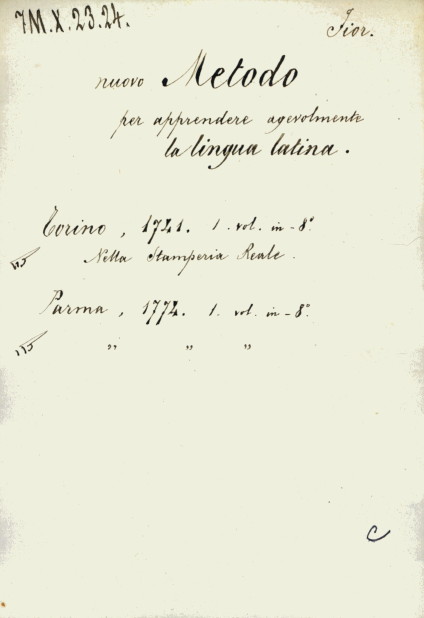 7M.X.23.24.
Fior.
nuovo Metodo
per apprendere agevolmente
la lingua latina.
Torino, 1721. 1. vol. in-8°.
Nella Stamperia Reale.
Parma, 1772. 1. vol. in-8°.
" " "
C